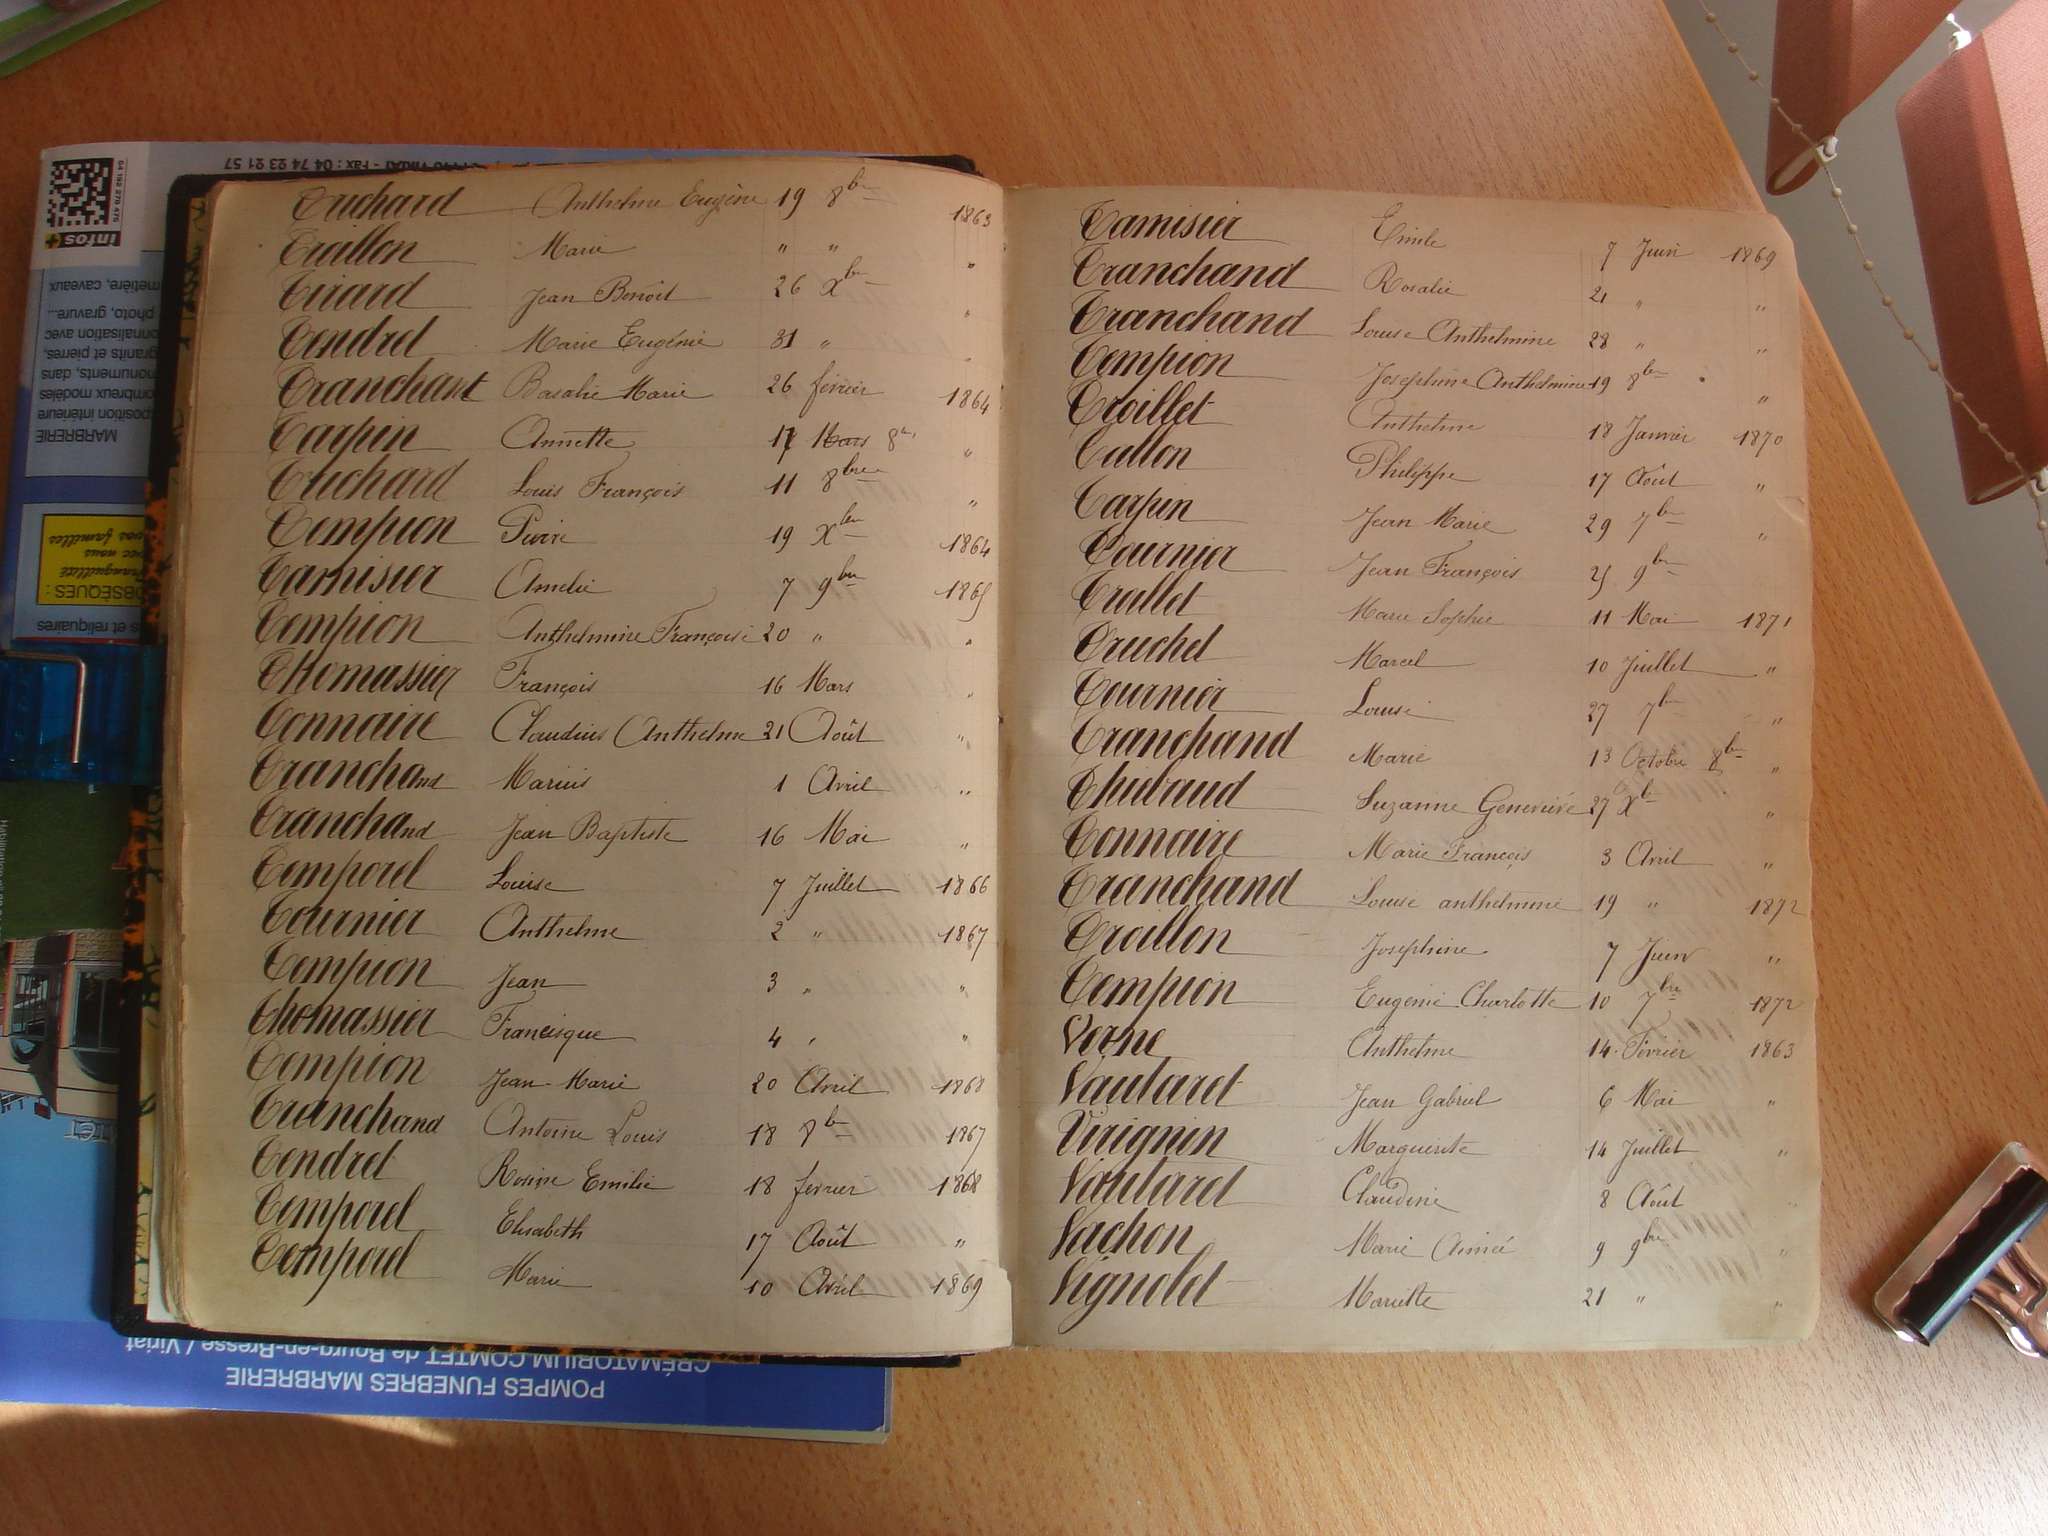 Truchard Anthelme Eugène 19 8bre 1863
Troillon Marie " " "
Tirard Jean Benoit 26 Xbre "
Tendret Marie Eugénie 31 " "
Tranchant Rosalie Marie 26 février 1864
Tarpin Annette 17 Mars 8bre "
Truchard Louis François 11 8bre "
Tempion Pierre 19 Xbre 1864
Tamisier Amélie 7 9bre 1865
Tempion Anthelmine Françoise 20 " "
Thomassier François 16 Mars "
Tonnaire Claudius Anthelme 21 Août "
Tranchand Marius 1 Avril "
Tranchand Jean Baptiste 16 Mai "
Temporel Louise 7 Juillet 1866
Tournier Anthelme 2 " 1867
Tempion Jean 3 " "
Thomassier Francisque 4 " "
Tempion Jean Marie 20 Avril 1868
Tranchand Antoine Louis 18 8bre 1867
Tendret Rosine Emilie 18 février 1868
Temporel Elisabeth 17 Août "
Temporel Marie 10 Avril 1869
Tamisier Emile 7 Juin 1869
Tranchand Rosalie 21 " "
Tranchand Louise Anthelmine 28 " "
Tempion Joséphine Anthelmine 19 8bre "
Troillet Anthelme 18 Janvier 1870
Tullon Philippe 17 Août "
Tarpin Jean Marie 29 7bre "
Tournier Jean François 25 9bre
Trollet Marie Sophie 11 Mai 1871
Truchet Marcel 10 Juillet "
Tournier Louise 27 7bre "
Tranchand Marie 13 Octobre 8bre "
Thubaud Suzanne Geneviève 27 Xbre "
Tonnaire Marie François 3 Avril "
Tranchand Louise anthelmine 19 " 1872
Troillon Joséphine 7 Juin "
Tempion Eugénie Charlotte 10 7bre 1872
Verne Anthelme 14 Février 1863
Vautaret Jean Gabriel 6 Mai "
Virignin Marguerite 14 Juillet "
Vautaret Claudine 8 Août "
Vachon Marie Aimée 9 9bre "
Vignolet Mariette 21 " "
POMPES FUNEBRES MARBRERIE
CRÉMATORIUM COMTET de Bourg-en-Bresse / Viriat
MARBRERIE
infos+
04 74 23 21 57